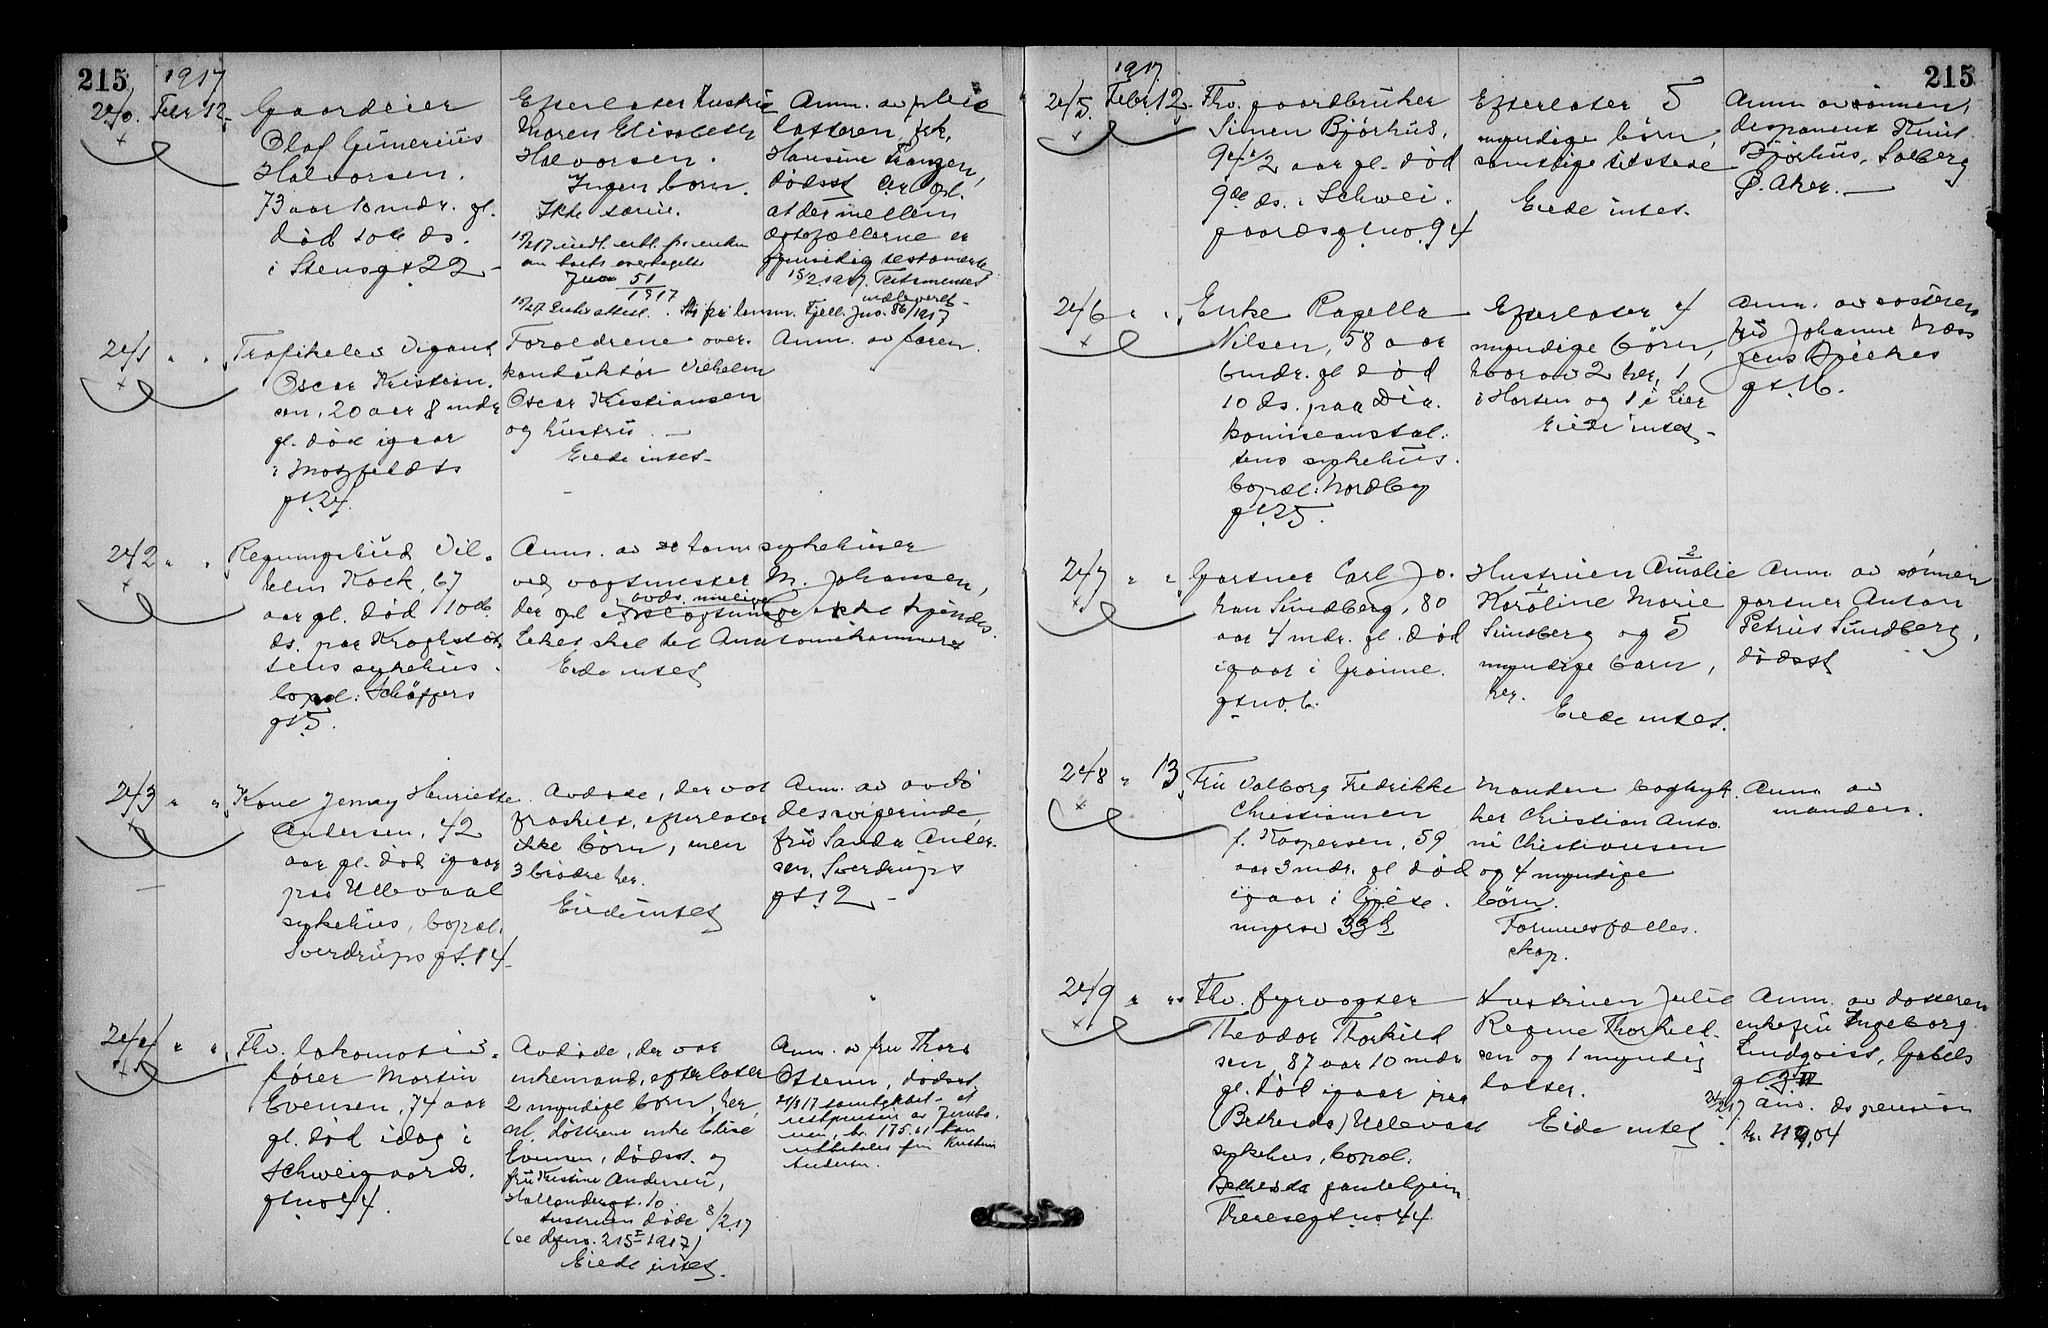 215
1917
240. Febr 12.
Gaardeier
Olaf Gunerius
Halvorsen.
73 aar 10 mdr. gl.
død 10de ds.
i Stensgt 22
Efterlater hustru
Maren Elisabeth
Halvorsen.
Ingen børn.
Ikke særeie.
om boets overtagelse
Jnr 51/1917
Anm. av pleie
datteren, frk.
Hansine
dødsst. Der opl.
at der mellem
ægtefællerne er
gjensidig testamente
15/2 1917. Testamentet
indleveret
Fjell. Jno. 86/1917
241 " "
Trafikelev Vigant
Oscar Kristian-
sen, 20 aar 8 mdr
gl. død igaar
i Motzfeldts
gt. 24.
Forældrene over-
konduktør Vilhelm
Oscar Kristiansen
og hustru.
Eiede intet
Anm. av faren.
242 " "
Regningsbud Vil-
helm Kock, 67
aar gl. død 10de
ds. paa Krohgstøt-
tens sykehus.
bopæl: Schöffers
gt 5.
Anm. av samm sykehus
ved vagtmester M. Johansen,
der opl. at avds. mulige
slegtninge ikke kjendes.
Liket skal til Anatomikammeret
Eiede intet
243 " "
Kone Jenny Henriette
Andersen, 42
aar gl. død igaar
paa Ullevaal
sykehus, bopæl:
Sverdrups gt. 14
Avdøde, der var
fraskilt, efterlater
ikke børn, men
3 brødre her.
Eiede intet
Anm. av avdø
des svigerinde,
fru Sanda Ander-
sen, Sverdrups
gt. 12
244 " "
Fhv. lokomotiv-
fører Martin
Evensen, 74 aar
gl. død idag i
Schweigaards
gt no 44.
Avdøde, der var
enkemand, efterlater
2 myndige børn, her,
nl. døttrene enke Elise
Evensen, dødsst. og
fru Kristine Andersen,
Hallendersgt. 10.
Hustruen døde 8/2.17
(se dfno. 215 I 1917)
Eiede intet.
Anm. av fru Thora
Ottesen, dødsst.
21/3 17 samtykket i at
restpension av Jernba-
nen, kr. 175.61 kan
utbetales fru Kristine
Andersen.
215
1917
245. Febr. 12.
Fhv. gaardbruker
Simen Bjørhus,
94 1/2 aar gl. død
9de ds. i Schwei-
gaardsgt. no. 94
Efterlater 5
myndige børn,
samtlige tilstede
Eiede intet.
Anm. av sønnen,
disponent Knut
Bjørhus, Solberg
Ø. Aker.
246 " "
Enke Pagella
Nilsen, 58 aar
6 mdr. gl. død
10 ds. paa Dia-
konisseanstal-
tens sykehus.
bopæl: Nordbg
gt. 25.
Efterlater 4
myndige børn,
hvorav 2 her, 1
i Horten og 1 i Lier
Eiede intet
Anm. av søsteren
fru Johanne
gt. 16.
247 " "
Gartner Carl Jo-
han Sundberg, 80
aar 4 mdr. gl. død
igaar i Grønne-
gt no 6.
Hustruen Amalie
Karoline Marie
Sundberg og 5
myndige barn,
her.
Eiede intet.
Anm. av sønnen
gartner Anton
Petrus Sundberg,
dødsst
248 " 13.
Fru Valborg Fredrikke
Christiansen
f. Kaspersen, 59
aar 3 mdr. gl død
igaar i Gjete-
myrsv 33
Manden bogtryk-
ker Christian Anto-
ni Christiansen
og 4 myndige
børn.
Formuesfælles-
skap.
Anm. av
manden.
249 " "
Fhv. fyrvogter
Theodor Thorkild
sen, 87 aar 10 mdr
gl. død igaar paa
(Bethesda) Ullevaal
sykehus, bopæl:
Bethesda gamlehjem
Theresegt. no 44
Hustruen Julie
Regine Thorkild-
sen og 1 myndig
datter.
Eide intet
Anm. av datteren
enkefru Ingeborg
Lindqvist, Gabels
ds pension